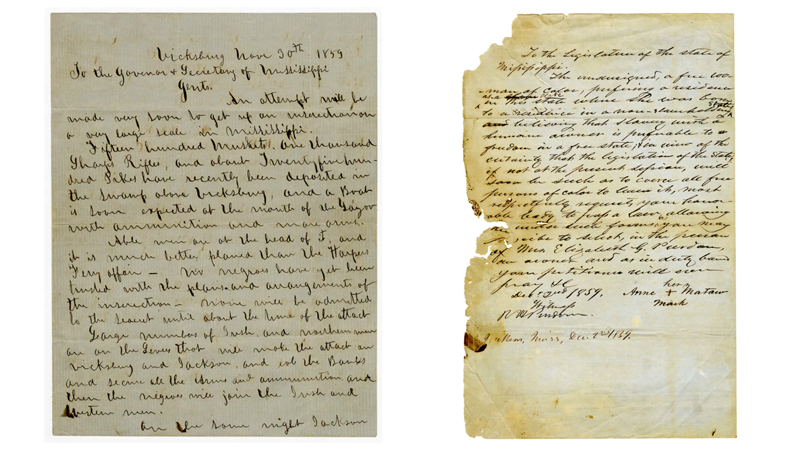 Vicksburg Nov 30th 1859
To the Govenor & Secretary of Mississippi
Gents.
An attempt will be
made very soon to get up an insurection on
a very large scale in Mississippi.
Fifteen hundred Muskets, one thousand
Sharps Rifles, and about Twentyfive hun-
dred Pikes have recently been deposited in
the swamp above Vicksburg, and a Boat
is soon expected at the mouth of the Yazoo
with ammunition and more arms.
Able men are at the head of I, and
it is much better planed than the Harpers
Fery affair — no negroes have yet been
trusted with the plans and arrangements of
the insurection — none will be admitted
to the secret until about the time of the attact
Large numbers of Irish and northern men
are on the Levee that will make the attact on
Vicksburg and Jackson, and rob the Banks
and secure all the Arms and ammunition and
then the negroes will join the Irish and
Western men.
On the same night Jackson
To the Legislature of the state of
Mississippi.
The undersigned, a free wo-
man of color, prefering a residence
in this state where she was born
to a residence in a non-slaveholding State,
and believing that slavery with a
humane owner is preferable to
freedom in a free state, & in view of the
certainty that the legislation of the state,
if not at the present session, will
soon be such as to coerce all free
persons of color to leave it, most
respectfully requests your honor-
able body to pass a law, allowing
to select, in the person
of Mrs Elizabeth G. Pierson,
an owner and as in duty bound
your petitioner will ever
pray &c
Dec 2nd 1859.
her
Anne + Matthews
mark
Witness
Jackson, Miss, Dec 2nd 1859.